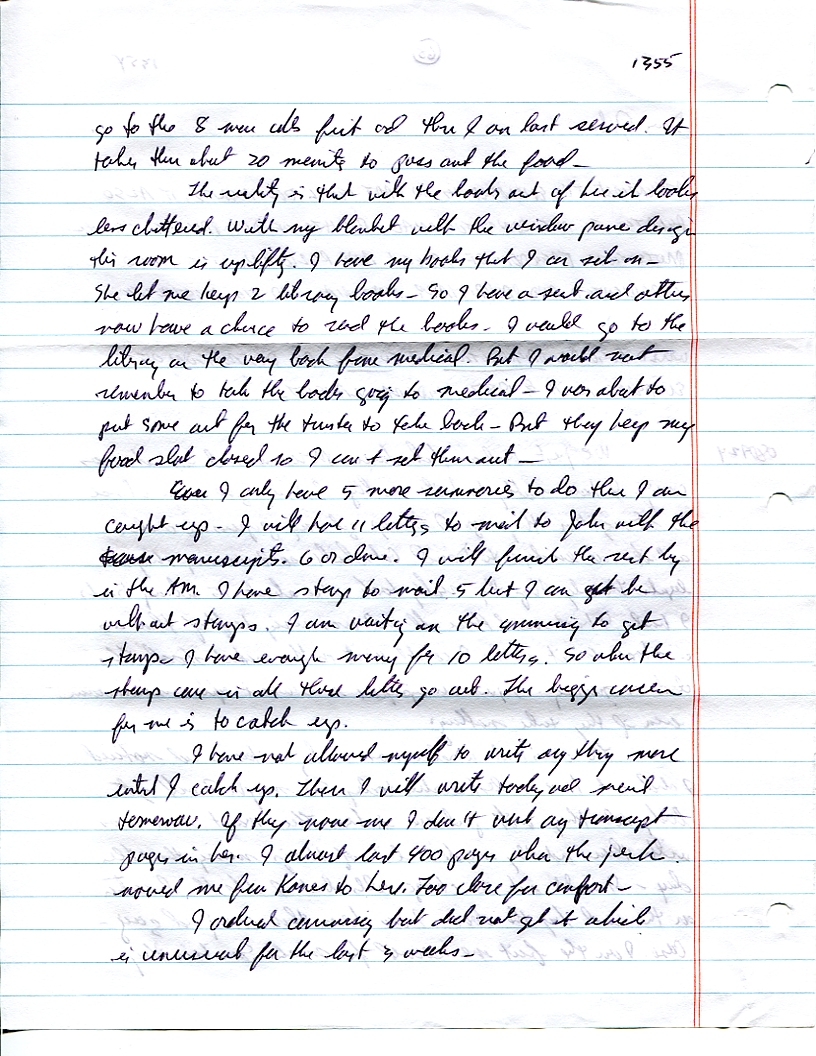 1355
go to the 8 man cells first and then I am last served. It
takes them about 20 minutes to pass out the food—
The reality is that with the books out of here it looks
less cluttered. With my blanket with the window pane design
this room is uplifting. I have my books that I can sit on—
She let me keep 2 library books— So I have a seat and others
now have a choice to read the books. I would go to the
library on the way back from medical. But I would not
remember to take the books going to medical— I was about to
put some out for the trustee to take back— But they keep my
food slot closed so I can't set them out—
I only have 5 more summeries to do then I am
caught up— I will have 11 letters to mail to John with the
manuscripts. 6 or done. I will finish the rest by
in the AM. I have stamps to mail 5 but I can get be
without stamps. I am waiting on the commissary to get
stamps— I have enough money for 10 letters. So when the
stamp come in all those letters go out. The bigger concern
for me is to catch up.
I have not allowed myself to write any thing more
until I catch up. Then I will write today and mail
tomorrow. If they move me I don't want any transcript
pages in here. I almost lost 400 pages when the jerk
moved me from Kanes to here. Too close for comfort—
I ordered commissary but did not get it which
is unusual for the last 3 weeks—